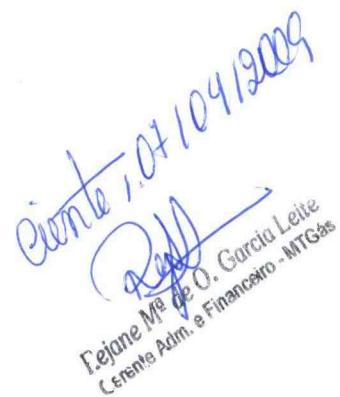 Ciente, 07/04/2009
Rejane Mª de O. Garcia Leite
Gerente Adm. e Financeiro - MTGás